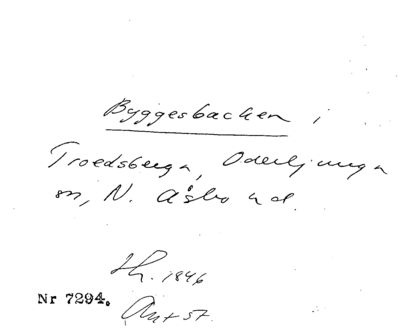 Byggesbacken i
Troedsberga, Oderljunga
sn, N. Åsbo hd.
Hh. 1846
Nr 7294.
Ant st.